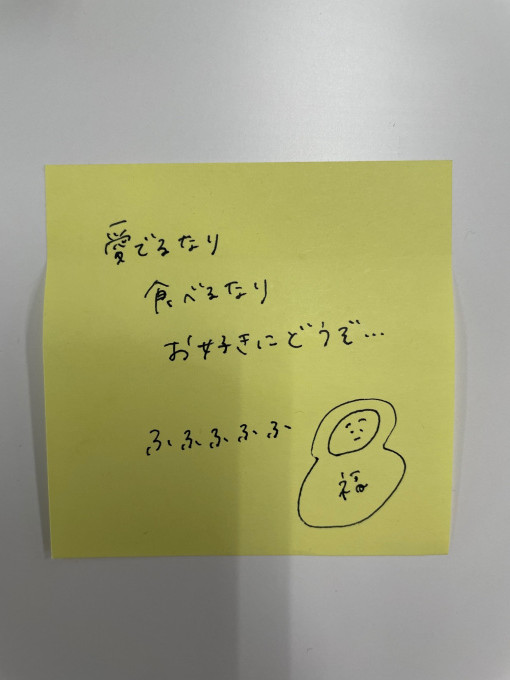 愛でるなり
食べるなり
お好きにどうぞ…
ふふふふふ
福